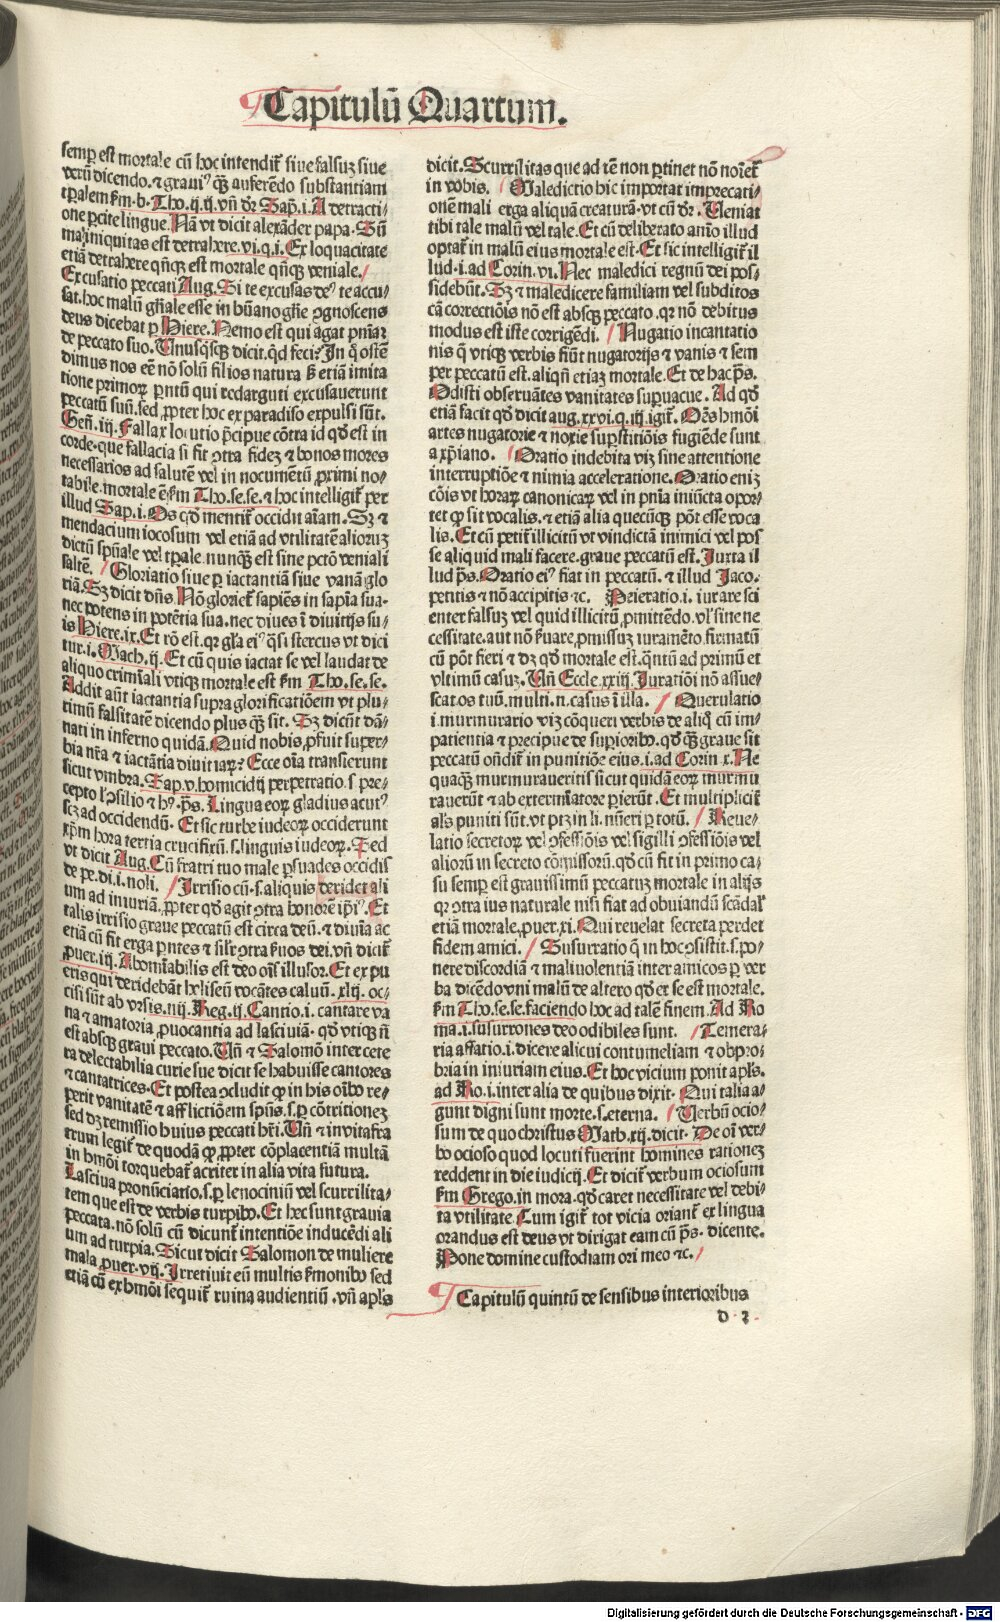 Capitulū Quartum.
semp̱ est mortale cū hoc intendit̄ siue falsuꝫ siue
verū dicendo. ⁊ grauiꝰ qꝫ̄ auferēdo substantiam
tp̄alem ẜm.b. Tho.ij.ij. vn̄ dr̄ Sap̄.i. A detracti⸗
one p̱cite lingue. Nā vt dicit alexāder papa. Sū
ma iniquitas est detrahere.vi.q.i. Ex loquacitate
etiā detrahere qn̄qꝫ est mortale qn̄qꝫ veniale.
Excusatio peccati Aug. Si te excusas deꝰ te accu⸗
sat. hoc malū gn̄ale esse in hūano gn̄e ꝯgnoscens
deus dicebat p̱ Hiere. Nemo est qui agat pn̄iaꝫ
de peccato suo. Unusqͥsqꝫ dicit. qͥd feci? In q̄ ostē
dimus nos eē nō solū filios natura ß etiā imita
tione primoꝝ pn̄tū qui redarguti excusauerunt
peccatū suū. sed ꝓpter hoc ex paradiso expulsi sūt.
Gen̄.iij. Fallax locutio p̄cipue cōtra id qd̓ est in
corde. que fallacia si fit ꝯtra fidez ⁊ bonos mores
necessarios ad salutē vel in nocumētū ꝓximi no⸗
tabile. mortale ē ẜm Tho.se.se. ⁊ hoc intelligit̄ per
illud Sap.i. Os qd̓ mentit̄ occidit aīam. Sꝫ ⁊
mendacium iocosum vel etiā ad vtilitatē alioruꝫ
dictū spūale vel tp̄ale nunqꝫ̄ est sine pctō veniali
saltē. Gloriatio siue p̱ iactantiā siue vanā glo
riā. Sꝫ dicit dn̄s. Nō gloriet̄ sapiēs in sapīa sua.
nec potens in potētia sua. nec diues ī diuitijs su⸗
is Hiere.ix. Et rō est. qꝛ gl̄a eiꝰ qͣsi stercus vt dici
tur.i. Mach.ij. Et cū quis iactat se vel laudat de
aliquo crimīali vtiqꝫ mortale est ẜm Tho.se.se.
Addit aūt iactantia supra glorificatiōem vt plu⸗
rimū falsitatē dicendo plus qꝫ̄ sit. Sꝫ dicūt dā⸗
nati in inferno quidā. Quid nobis ꝓfuit super⸗
bia nr̄a ⁊ iactātia diuitiaꝝ? Ecce oīa transierunt
sicut vmbra. Sap.v. homicidij perpetratio.s. pre⸗
cepto ꝯsilio ⁊ hꝰ. p̄s. Lingua eoꝝ gladius acutꝰ
scꝫ ad occidendū. Et sic turbe iudeoꝝ occiderunt
xp̄m hora tertia crucifixū.s. linguis iudeoꝝ. Sed
vt dicit Aug. Cū fratri tuo male p̱suades occidis
de pe.di.i. noli. Irrisio cū.s. aliquis deridet ali
um ad iniuriā. ꝓpter qd̓ agit ꝯtra honorē ip̄iꝰ. Et
talis irrisio graue peccatū est circa deū. ⁊ diuīa ac
etiā cū fit erga p̱ntes ⁊ sil̓r ꝯtra ẜuos dei. vn̄ dicit̄
ꝓuer.iij. Abomīabilis est deo oīs illusor. Et ex pu
eris qui deridebāt heliseū vocātes caluū. xlij. oc⸗
cisi sūt ab vrsis. iiij. Reg.ij. Cantio.i. cantare va
na ⁊ amatoria ꝓuocantia ad lasciuiā. qd̓ vtiqꝫ n̄
est absqꝫ graui peccato. Un̄ ⁊ Salomō inter cete
ra delectabilia curie sue dicit se habuisse cantores
⁊ cantatrices. Et postea ꝯcludit ꝙ in his oībꝰ re⸗
perit vanitatē ⁊ afflictiōem spūs.s. p̱ cōtritionez
sed dꝫ remissio huius peccati hr̄i. Un̄ ⁊ in vitafra
trum legit̄ de quodā ꝙ ꝓpter cōplacentiā multā
in hmōi torquebat̄ acriter in alia vita futura.
Lasciua pronūciatio.s. p̱ lenociniū vel scurrilita⸗
tem que est de verbis turpibꝰ. Et hec sunt grauia
peccata. nō solū cū dicunt̄ intentiōe inducēdi ali
um ad turpia. Sicut dicit Salomon de muliere
mala ꝓuer.vij. Irretiuit eū multis ẜmonibꝰ sed
etiā cū ex hmōi sequit̄ ruina audientiū. vn̄ apl̓s
dicit. Scurrilitas que ad rē non p̱tinet nō noīet̄
in vobis. Maledictio hic importat imprecati⸗
onē mali erga aliquā creaturā. vt cū dr̄. Ueniat
tibi tale malū vel tale. Et cū deliberato aīo illud
optat̄ in malū eius mortale est. Et sic intelligit̄ il
lud.i. ad Corin.vi. Nec maledici regnū dei pos⸗
sidebūt. Sꝫ ⁊ maledicere familiam vel subditos
cā correctiōis nō est absqꝫ peccato. qꝛ nō debitus
modus est iste corrigēdi. Nugatio incantatio
nis q̄ vtiqꝫ verbis fiūt nugatorijs ⁊ vanis ⁊ sem
per peccatū est. aliqn̄ etiaꝫ mortale. Et de hac p̄s.
Odisti obseruātes vanitates sup̱uacue. Ad qd̓
etiā facit qd̓ dicit aug. xxvi.q.iij. igit̄. Oēs hmōi
artes nugatorie ⁊ noxie sup̱stitiōis fugiēde sunt
a xp̄iano. Oratio indebita viꝫ sine attentione
interruptiōe ⁊ nimia acceleratione. Oratio eniꝫ
cōis vt horaꝝ canonicaꝝ vel in pn̄ia iniūcta opor⸗
tet ꝙ sit vocalis. ⁊ etiā alia quecūqꝫ pōt esse voca
lis. Et cū petit̄ illicitū vt vindictā inimici vel pos
se aliquid mali facere. graue peccatū est. Iuxta il
lud p̄s. Oratio eiꝰ fiat in peccatū. ⁊ illud Iaco.
petitis ⁊ nō accipitis ⁊c. Peieratio.i. iurare sci
enter falsuꝫ vel quid illicitū ꝓmittēdo. vl̓ sine ne
cessitate. aut nō ẜuare ꝓmissuꝫ iuramēto firmatū
cū pōt fieri ⁊ dꝫ qd̓ mortale est. qͣntū ad primū et
vltimū casuꝫ. Un̄ Eccle.xxiij. Iuratiōi nō assue⸗
scat os tuū. multi.n. casus ī illa. Querulatio
i. murmurario viꝫ cōqueri verbis de aliqͦ cū im⸗
patientia ⁊ precipue de sup̱ioribꝰ. qd̓ qꝫ̄ graue sit
peccatū on̄dit̄ in punitiōe eius.i. ad Corin.x. Ne
quaqꝫ̄ murmuraueritis sicut quidā eoꝝ murmu
rauerūt ⁊ ab exterm̄iatore p̱ierūt. Et multiplicit̄
als̓ puniti sūt. vt ptꝫ in li. nūeri p̱ totū. Reue⸗
latio secretoꝝ vel ꝯfessiōis vel sigilli ꝯfessiōis vel
aliorū in secreto cōmissorū. qd̓ cū fit in primo ca⸗
su semp̱ est grauissimū peccatuꝫ mortale in alijs
qꝛ ꝯtra ius naturale nisi fiat ad obuiandū scādal̓
etiā mortale. ꝓuer.xi. Qui reuelat secreta perdet
fidem amici. Susurratio q̄ in hoc ꝯsistit.s. po⸗
nere discordiā ⁊ maliuolentiā inter amicos p̱ ver
ba dicēdo vni malū de altero qd̓ er se est mortale.
ẜm Tho.se.se. faciendo hoc ad talē finem. Ad Ro
ma.i. susurrones deo odibiles sunt. Temera⸗
ria affatio.i. dicere alicui contumeliam ⁊ obpro⸗
bria in iniuriam eius. Et hoc vicium ponit apl̓s.
ad Ro.i. inter alia de quibus dixit. Qui talia a⸗
gunt digni sunt morte.s. eterna. Uerbū ocio⸗
sum de quo christus Math.xij. dicit. De oī ver⸗
bo ocioso quod locuti fuerint homines rationez
reddent in die iudicij. Et dicit̄ verbum ociosum
ẜm Grego. in mora. qd̓ caret necessitate vel debi⸗
ta vtilitate. Cum igit̄ tot vicia oriant̄ ex lingua
orandus est deus vt dirigat eam cū p̄s. dicente.
Pone domine custodiam ori meo ⁊c.
Capitulū quintū de sensibus interioribus
d 2
Digitalisierung gefördert durch die Deutsche Forschungsgemeinschaft - DFG